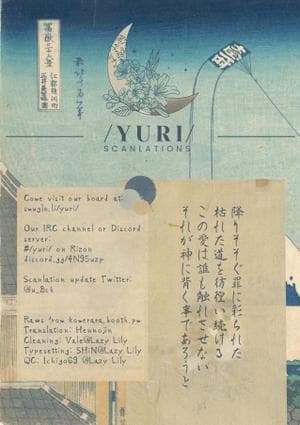 /YURI/
SCANLATIONS
Come visit our board at:
smuglo.li/yuri/
Our IRC channel or Discord
server:
#/yuri/ on Rizon
discord.gg/4N95uzp
Scanlation update Twitter:
@u_8ch
Raws from kowerara.booth.pm
Translation: Heunojin
Cleaning: Vale@Lazy Lily
Typesetting: SHiN@Lazy Lily
QC: Ichigo69 @Lazy Lily
降りそそぐ罪に彩られた
枯れた道を彷徨い続ける
この愛は誰も触れさせない
それが神に背く事であろうと